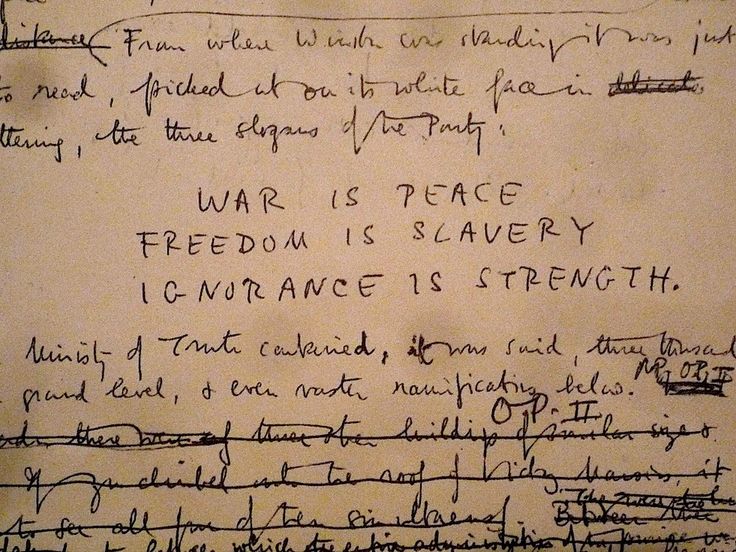 distance From where Winston was standing it was just
to read, picked out on its white face in delicate
ttering, the three slogans of the Party:
WAR IS PEACE
FREEDOM IS SLAVERY
IGNORANCE IS STRENGTH.
Ministry of Truth contained, it was said, three thousand
ground level, & even vaster ramifications below.
NP, OP, II
O.P. II
there were of three other buildings of similar size &
If you climbed onto the roof of Victory Mansions, it
to see all four of them simultaneously. There were the
Between them
between which the entire administration